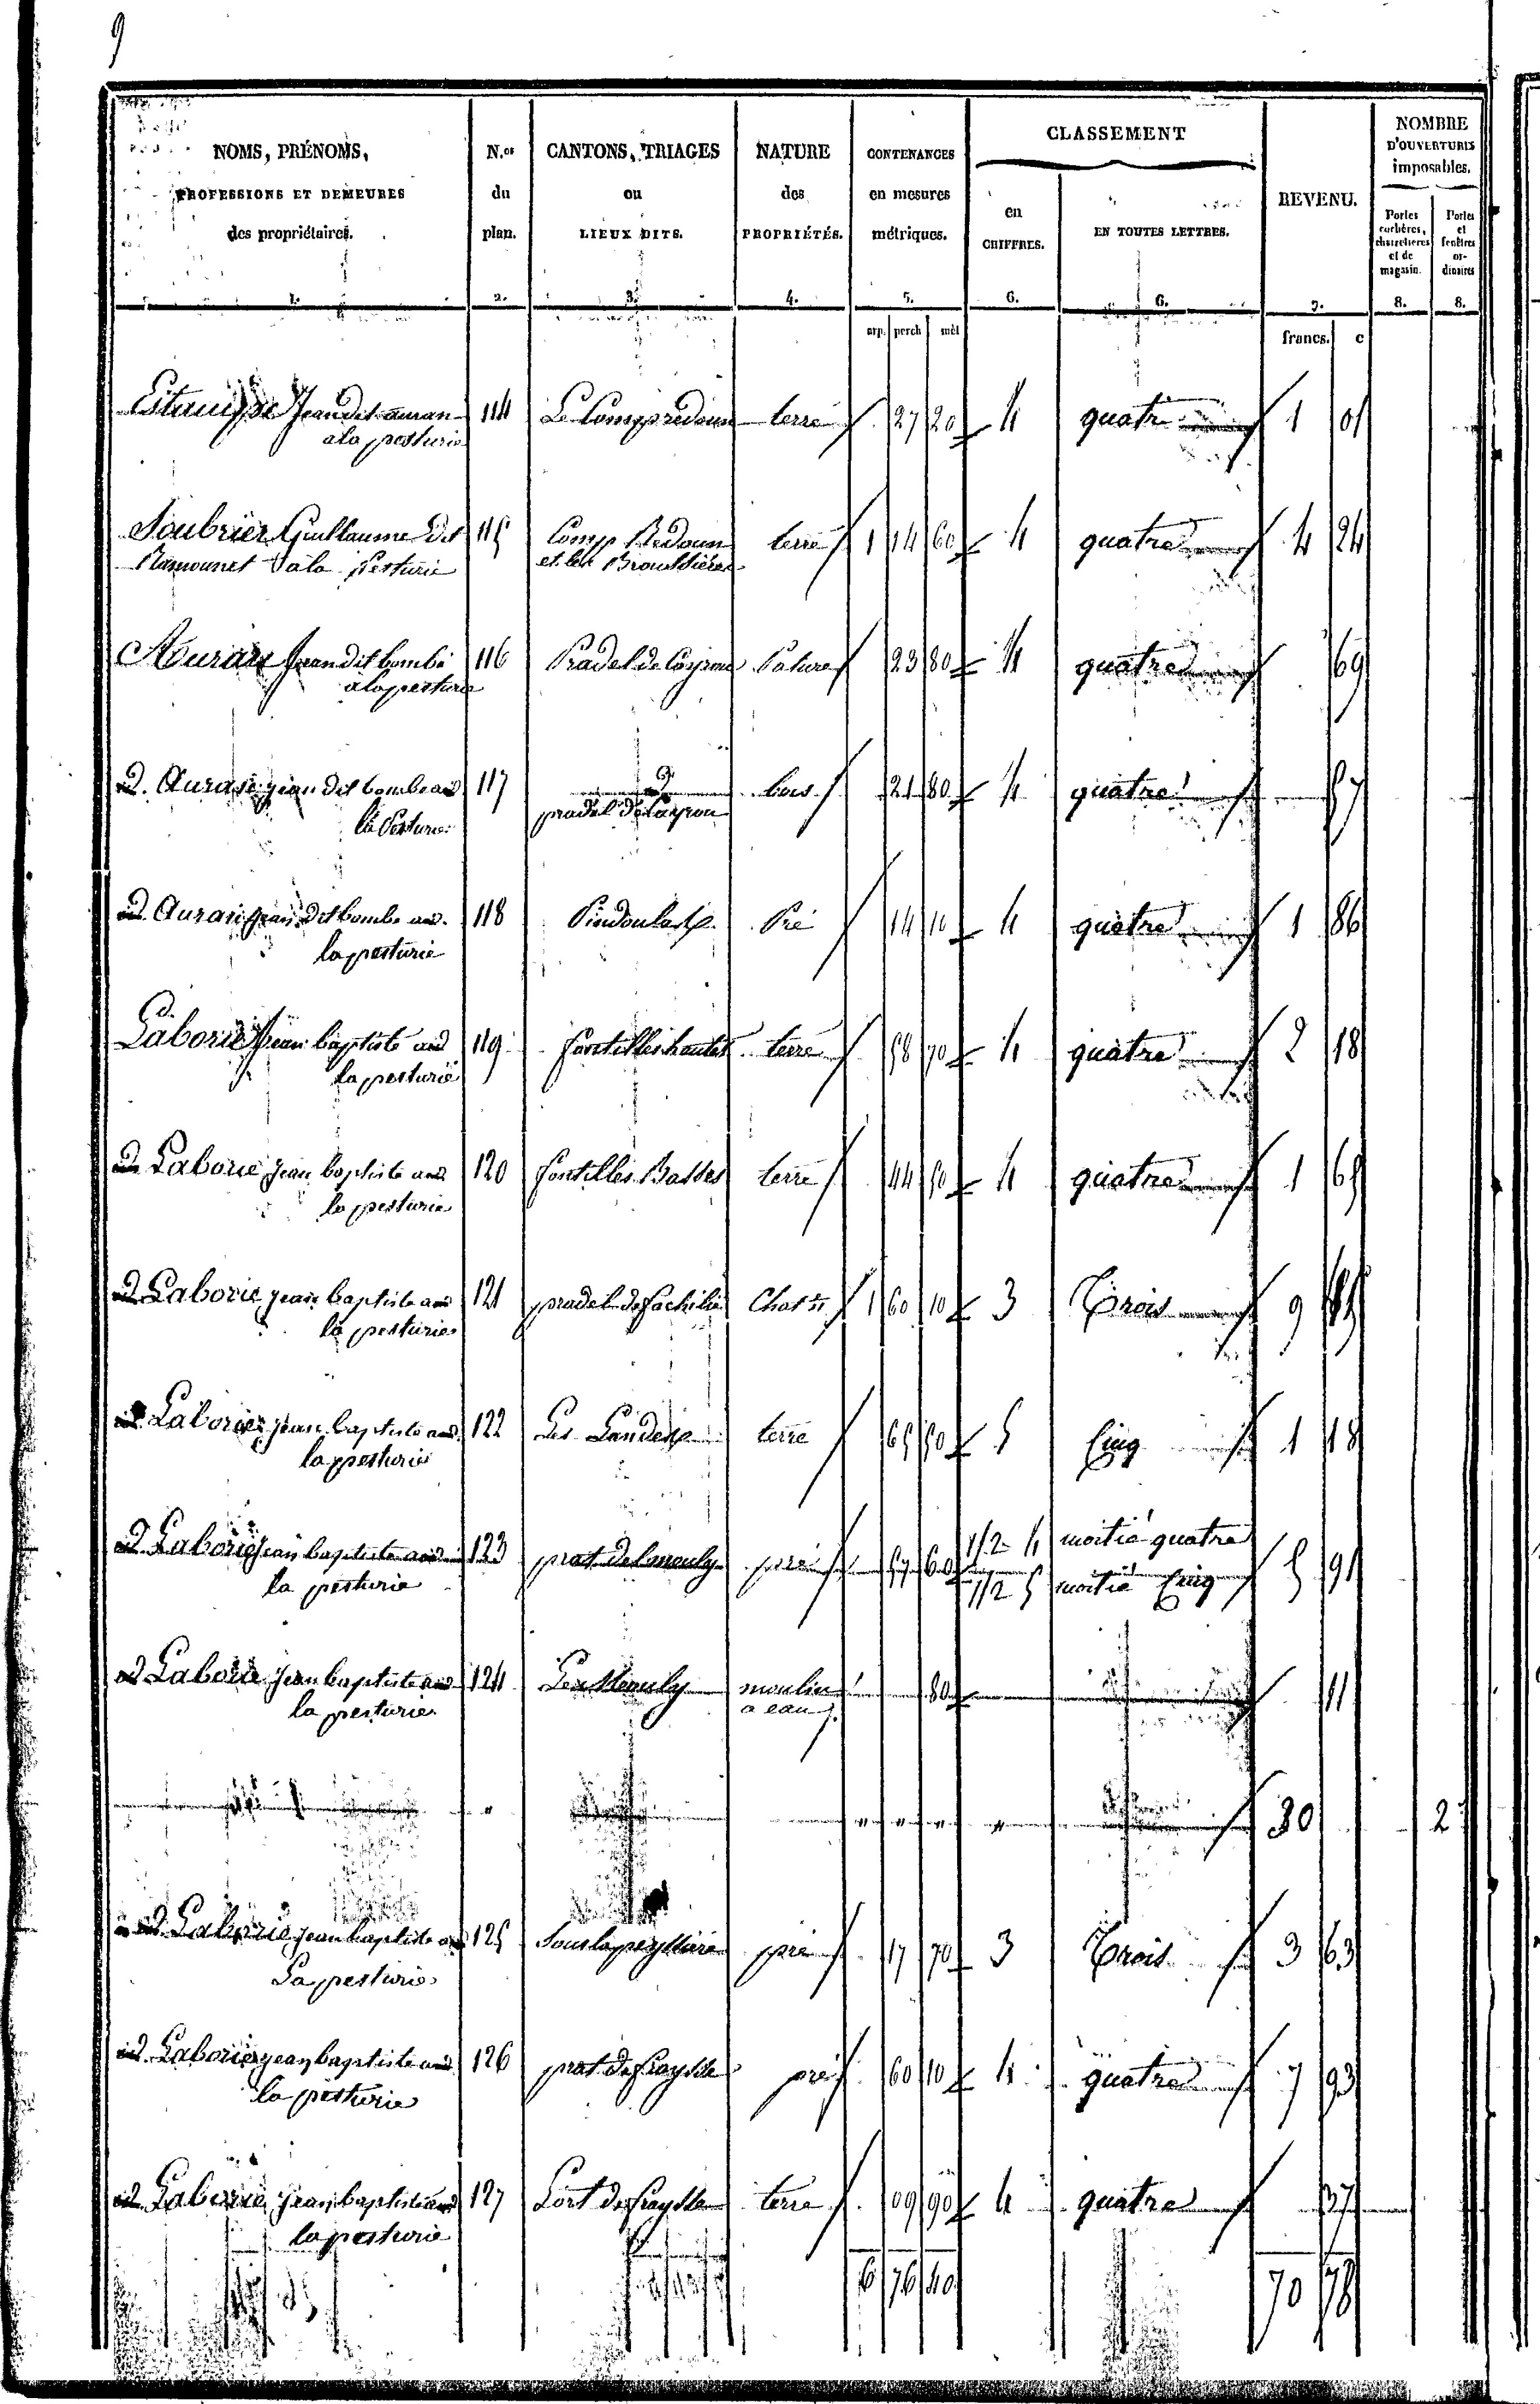 9
NOMS, PRÉNOMS, PROFESSIONS ET DEMEURES des propriétaires. 1.
N.os du plan. 2.
CANTONS, TRIAGES ou LIEUX DITS. 3.
NATURE des PROPRIÉTÉS. 4.
CONTENANCES en mesures métriques. 5.
CLASSEMENT
en CHIFFRES. 6.
EN TOUTES LETTRES. 6.
REVENU. 7.
NOMBRE D'OUVERTURES imposables.
Portes cochères, charretières et de magasin. 8.
Portes et fenêtres ordinaires 8.
arp. perch mèt francs. c
Jean dit auran 114 terre 27 20 4 quatre 1 01
a la pesturie
Soubrier Guillaume dit 115 Comp Redoun terre 1 14 60 4 quatre 4 24
Ramounet a la Pesturie et les Broussières
Jean dit bombe 116 Pradel de Cayrou Pature 23 80 4 quatre 69
a la pesturie
id. jean dit bombe a 117 d° bois 21 80 4 quatre 87
la Pesturie pradel de Cayrou
id. jean dit bombe a 118 Pré 14 10 4 quatre 1 86
la pesturie
Laborie jean baptiste a 119 fontilles hautes terre 58 70 4 quatre 2 18
la pesturie
id Laborie jean baptiste a 120 fontilles Basses terre 44 50 4 quatre 1 65
la pesturie
id Laborie jean baptiste a 121 pradel de 1 60 10 3 Trois 9
la pesturie
id Laborie jean baptiste a 122 Les Landes terre 65 50 5 Cinq 1 18
la pesturie
id Laborie jean baptiste a 123 prat del mouly pré 57 60 1/2 4 moitié quatre
la pesturie 1/2 5 moitié Cinq 5 91
id Laborie jean baptiste a 124 Mouly moulin 80 11
la pesturie a eau
" " " " " 30 2
id Laborie jean baptiste a 125 Sous la peyssière pré 17 70 3 Trois 3 63
La pesturie
id. Laborie jean baptiste a 126 prat de fraysse pré 60 10 4 quatre 7 93
la pesturie
id Laborie jean baptiste a 127 de fraysse terre 09 90 4 quatre 37
la pesturie
6 76 40 70 78